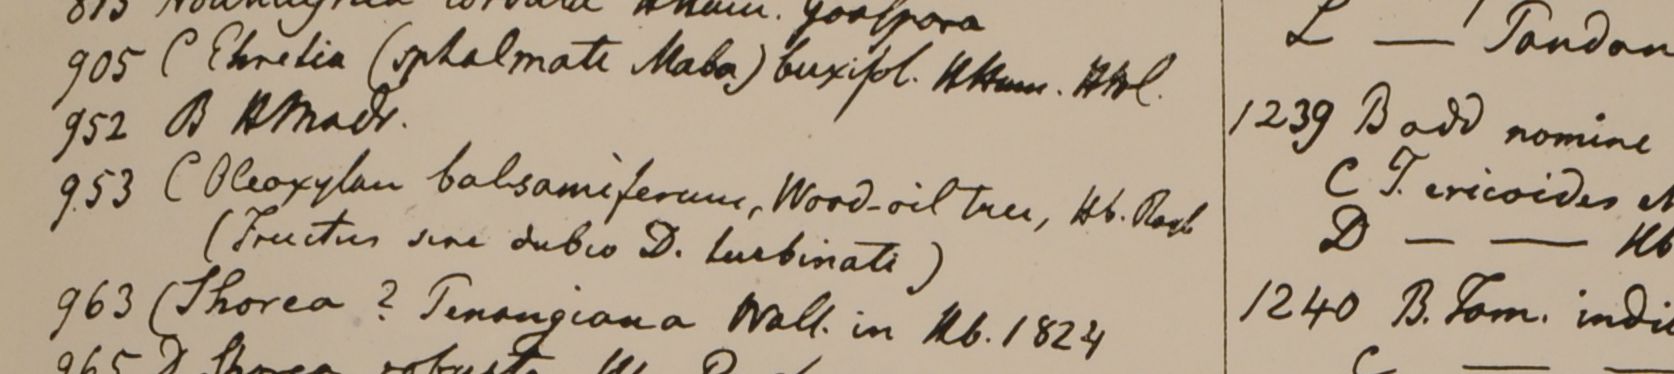 813 cordata HHam. Goalpara
905 C Ehretia (sphalmate Maba) buxifol. HHam. HWl.
952 B HMadr.
953 C Oleoxylon balsamiferum, Wood-oil tree, Hb. Roxb
(Fructus sine dubio D. turbinati)
963 (Shorea ? Penangiana Wall. in Hb. 1824
965 D Shorea robusta Hb.
L — Tondan
1239 B add nomine
C T. ericoides
D — — Hb
1240 B. Tam. indic
C — —